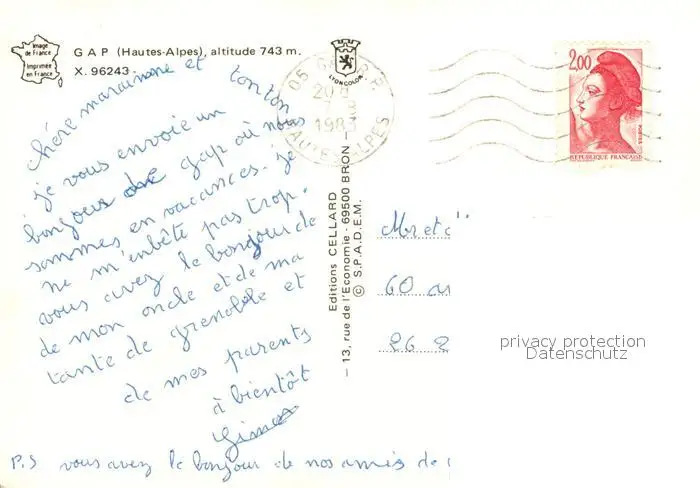 Image
de France
Imprimée
en France
GAP (Hautes-Alpes), altitude 743 m.
X. 96243
LYONCOLOR
05 GAP R.P
20 H
7
1983
HAUTES-ALPES
2,00
POSTES
REPUBLIQUE FRANÇAISE
Chère marainne et tonton
je vous envoie un
bonjour de gap où nous
sommes en vacances. je
ne m'enbête pas trop.
vous avez le bonjour de
de mon oncle et de ma
tante de grenoble et
de mes parents
à bientôt
P.S vous avez le bonjour de nos amis de
Editions CELLARD
- 13, rue de l'Economie - 69500 BRON -
© S.P.A.D.E.M.
Mr et
60
26 2
privacy protection
Datenschutz